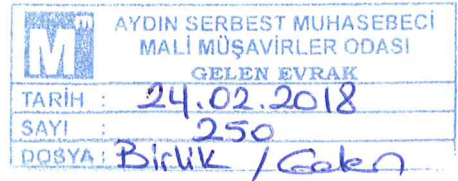 AYDIN SERBEST MUHASEBECİ
MALİ MÜŞAVİRLER ODASI
GELEN EVRAK
TARİH : 24.02.2018
SAYI : 250
DOSYA : Birlik / Gelen